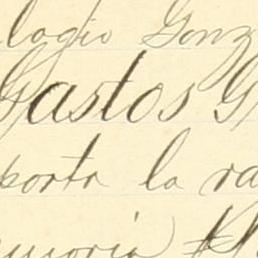 logio Gonz
Gastos G
porta la ra
moria